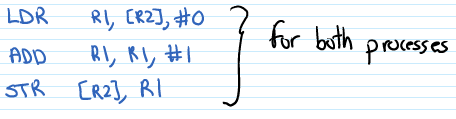 LDR R1, [R2], #0
ADD R1, R1, #1
STR [R2], R1
for both processes